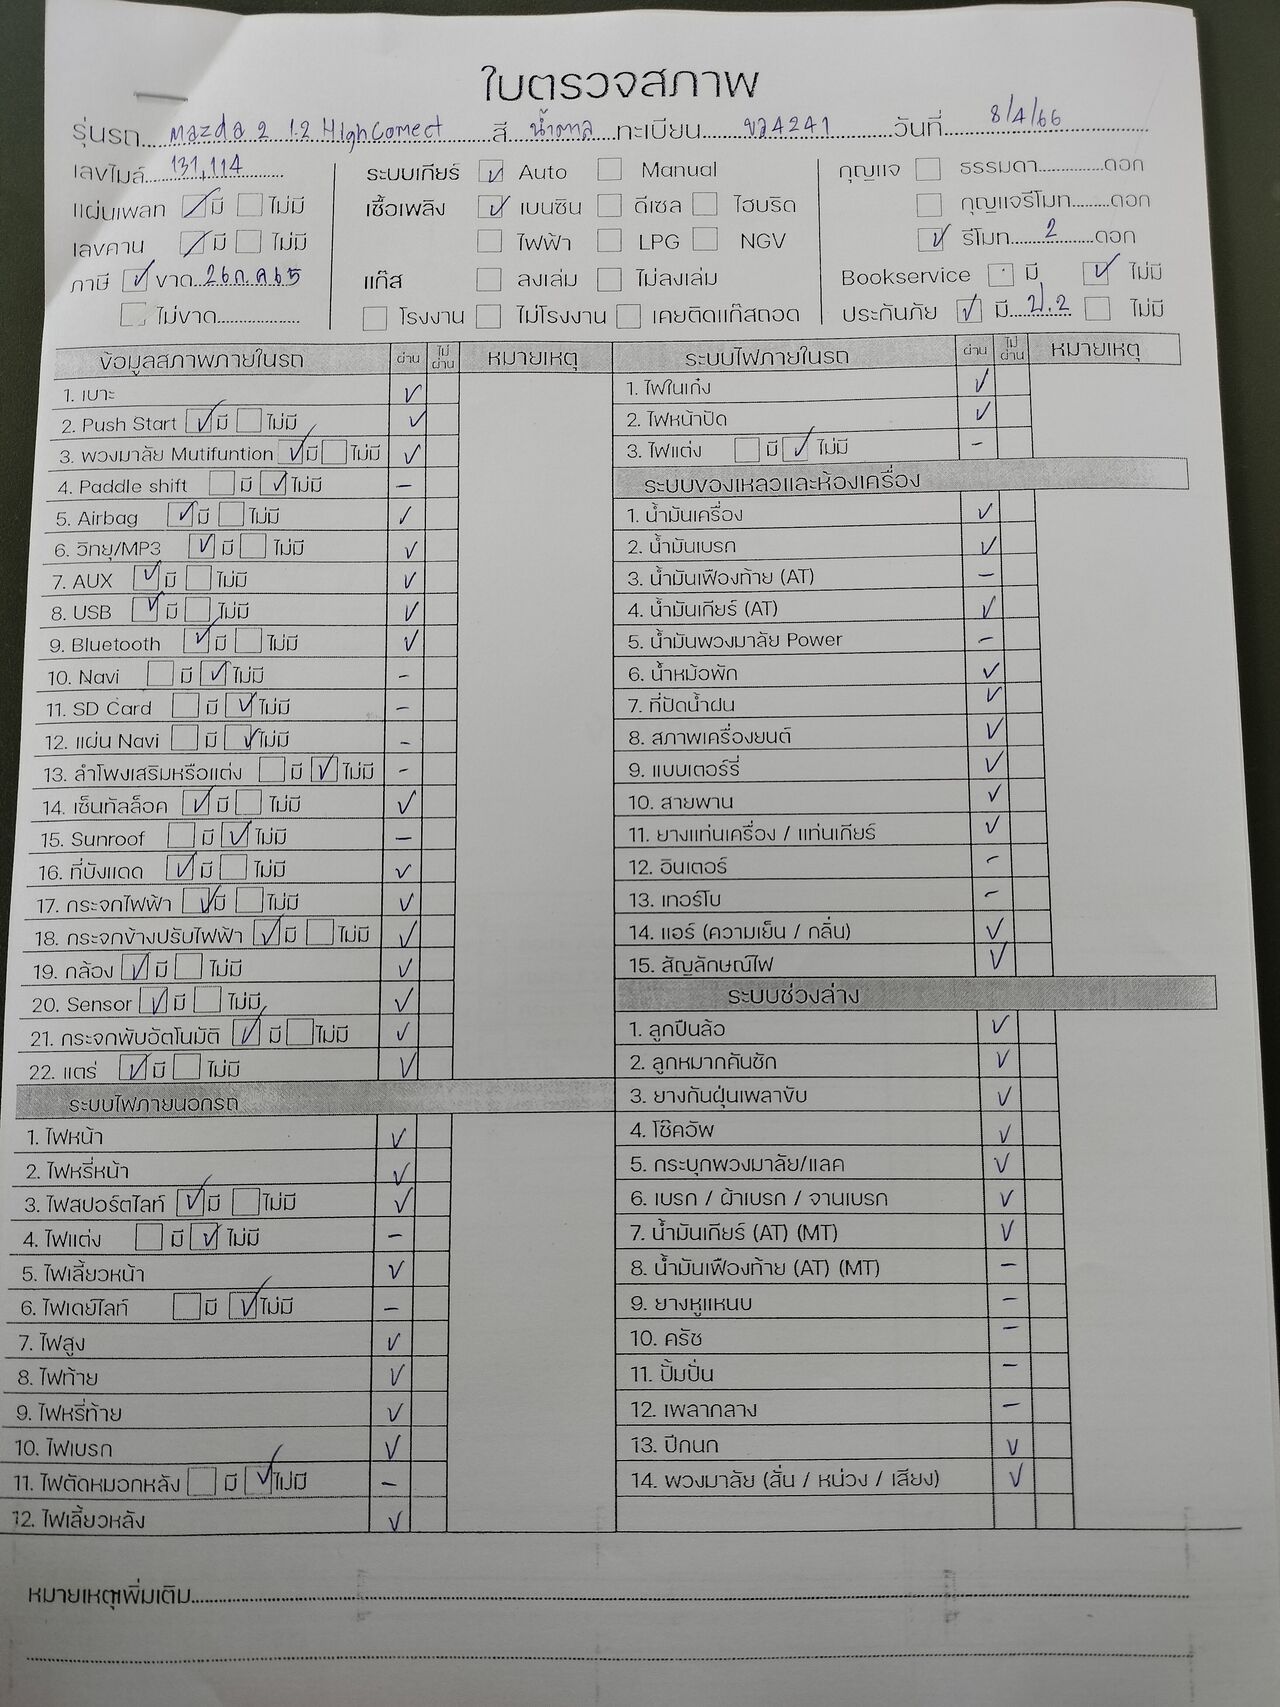 ใบตรวจสภาพ
รุ่นรถ Mazda 2 1.2 HIghComect สี น้ำตาล ทะเบียน ขว4241 วันที่ 8/4/66
เลขไมล์ 131,114
แผ่นเพลท ✓ มี ไม่มี
เลขคาน ✓ มี ไม่มี
ภาษี ✓ ขาด 26 ก.ค 65
ไม่ขาด
ระบบเกียร์ ✓ Auto Manual
เชื้อเพลิง ✓ เบนซิน ดีเซล ไฮบริด
ไฟฟ้า LPG NGV
แก๊ส ลงเล่ม ไม่ลงเล่ม
โรงงาน ไม่โรงงาน เคยติดแก๊สถอด
กุญแจ ธรรมดา ดอก
กุญแจรีโมท ดอก
✓ รีโมท 2 ดอก
Bookservice มี ✓ ไม่มี
ประกันภัย ✓ มี ป.2 ไม่มี
ข้อมูลสภาพภายในรถ ผ่าน ไม่ผ่าน หมายเหตุ
1. เบาะ ✓
2. Push Start ✓ มี ไม่มี ✓
3. พวงมาลัย Mutifuntion ✓ มี ไม่มี ✓
4. Paddle shift มี ✓ ไม่มี –
5. Airbag ✓ มี ไม่มี ✓
6. วิทยุ/MP3 ✓ มี ไม่มี ✓
7. AUX ✓ มี ไม่มี ✓
8. USB ✓ มี ไม่มี ✓
9. Bluetooth ✓ มี ไม่มี ✓
10. Navi มี ✓ ไม่มี –
11. SD Card มี ✓ ไม่มี –
12. แผ่น Navi มี ✓ ไม่มี –
13. ลำโพงเสริมหรือแต่ง มี ✓ ไม่มี –
14. เซ็นทัลล็อค ✓ มี ไม่มี ✓
15. Sunroof มี ✓ ไม่มี –
16. ที่บังแดด ✓ มี ไม่มี ✓
17. กระจกไฟฟ้า ✓ มี ไม่มี ✓
18. กระจกข้างปรับไฟฟ้า ✓ มี ไม่มี ✓
19. กล้อง ✓ มี ไม่มี ✓
20. Sensor ✓ มี ไม่มี ✓
21. กระจกพับอัตโนมัติ ✓ มี ไม่มี ✓
22. แตร่ ✓ มี ไม่มี ✓
ระบบไฟภายนอกรถ
1. ไฟหน้า ✓
2. ไฟหรี่หน้า ✓
3. ไฟสปอร์ตไลท์ ✓ มี ไม่มี ✓
4. ไฟแต่ง มี ✓ ไม่มี –
5. ไฟเลี้ยวหน้า ✓
6. ไฟเดย์ไลท์ มี ✓ ไม่มี –
7. ไฟสูง ✓
8. ไฟท้าย ✓
9. ไฟหรี่ท้าย ✓
10. ไฟเบรก ✓
11. ไฟตัดหมอกหลัง มี ✓ ไม่มี –
12. ไฟเลี้ยวหลัง ✓
ระบบไฟภายในรถ ผ่าน ไม่ผ่าน หมายเหตุ
1. ไฟในเก๋ง ✓
2. ไฟหน้าปัด ✓
3. ไฟแต่ง มี ✓ ไม่มี –
ระบบของเหลวและห้องเครื่อง
1. น้ำมันเครื่อง ✓
2. น้ำมันเบรก ✓
3. น้ำมันเฟืองท้าย (AT) –
4. น้ำมันเกียร์ (AT) ✓
5. น้ำมันพวงมาลัย Power –
6. น้ำหม้อพัก ✓
7. ที่ปัดน้ำฝน ✓
8. สภาพเครื่องยนต์ ✓
9. แบบเตอร์รี่ ✓
10. สายพาน ✓
11. ยางแท่นเครื่อง / แท่นเกียร์ ✓
12. อินเตอร์ –
13. เทอร์โบ –
14. แอร์ (ความเย็น / กลิ่น) ✓
15. สัญลักษณ์ไฟ ✓
ระบบช่วงล่าง
1. ลูกปืนล้อ ✓
2. ลูกหมากคันชัก ✓
3. ยางกันฝุ่นเพลาขับ ✓
4. โช๊คอัพ ✓
5. กระบุกพวงมาลัย/แลค ✓
6. เบรก / ผ้าเบรก / จานเบรก ✓
7. น้ำมันเกียร์ (AT) (MT) ✓
8. น้ำมันเฟืองท้าย (AT) (MT) –
9. ยางหูแหนบ –
10. ครัช –
11. ปั้มปั่น –
12. เพลากลาง –
13. ปีกนก ✓
14. พวงมาลัย (สั่น / หน่วง / เสียง) ✓
หมายเหตุเพิ่มเติม